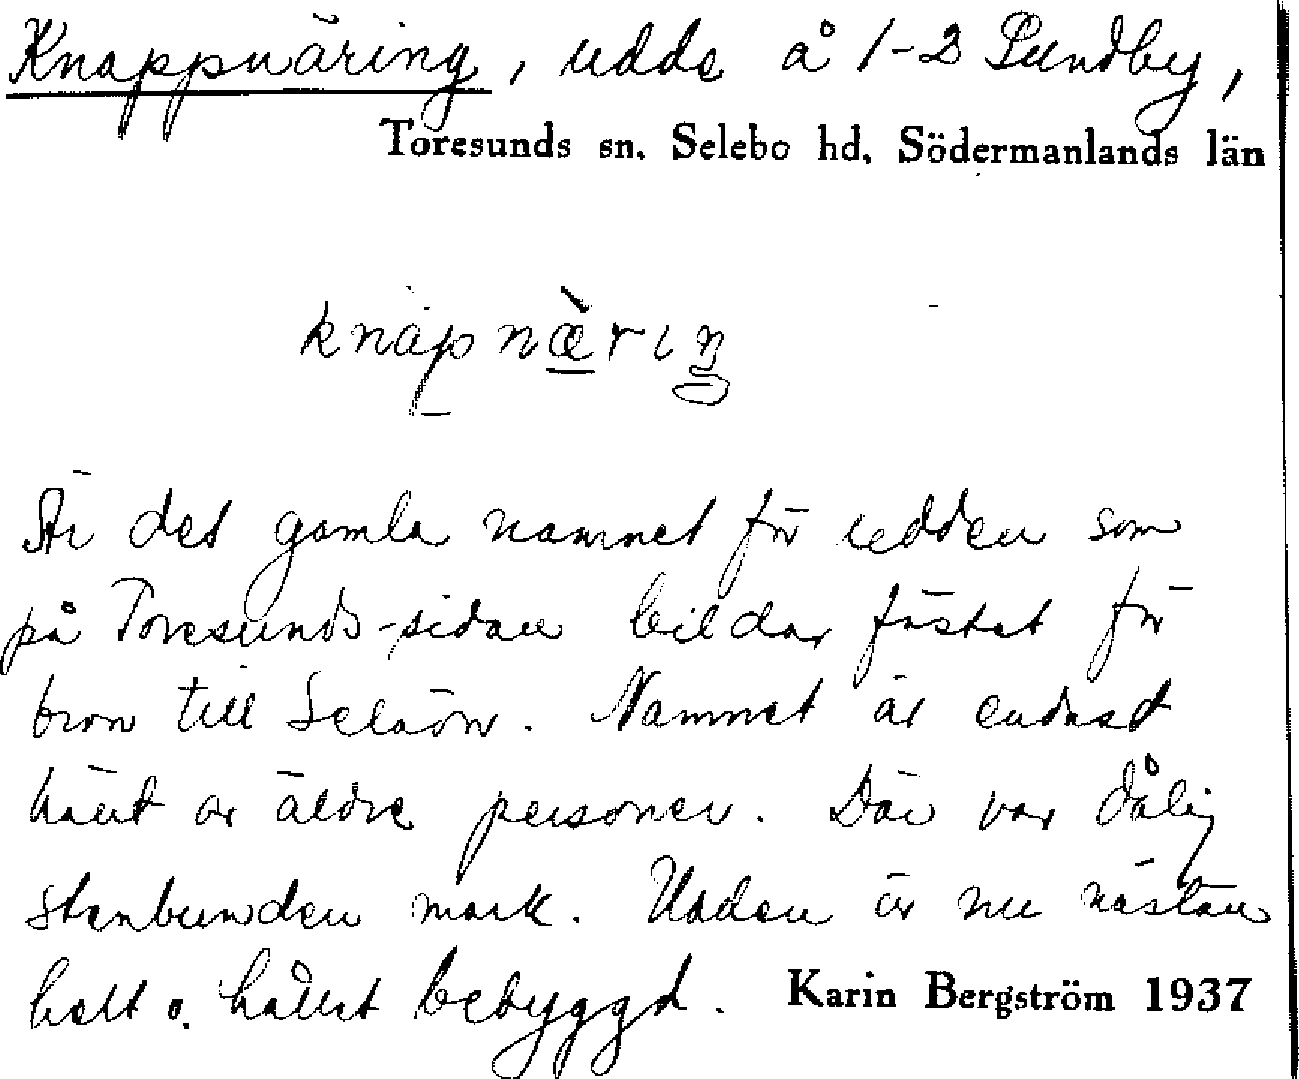 Knappnäring, udde å 1-2 Sundby,
Toresunds sn. Selebo hd. Södermanlands län
knapnæ̀riŋ
Är det gamla namnet för udden som
på Toresunds-sidan bildar fästet för
bron till Selaön. Namnet är endast
känt av äldre personer. Där var dålig
stenbunden mark. Udden är nu nästan
helt o. hållet bebyggd. Karin Bergström 1937